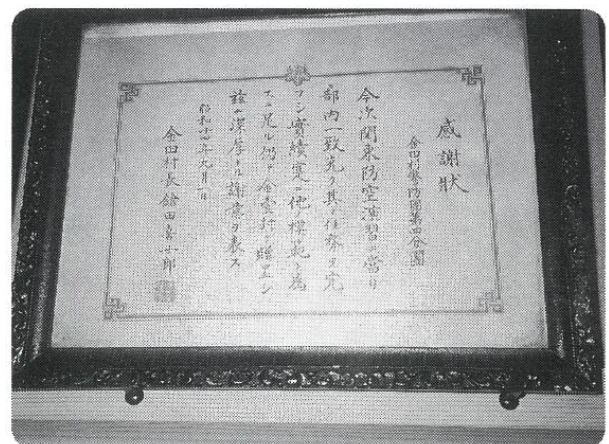 感謝狀
金田村警防團第四分團
今次関東防空演習ニ當リ
部内一致克ク其ノ任務ヲ完
フシ實績寔ニ他ノ模範ト為
スニ足ル仍テ金壹封ヲ贈呈シ
茲ニ深厚ナル謝意ヲ表ス
昭和十四年九月一日
金田村長 鎗田喜一郎